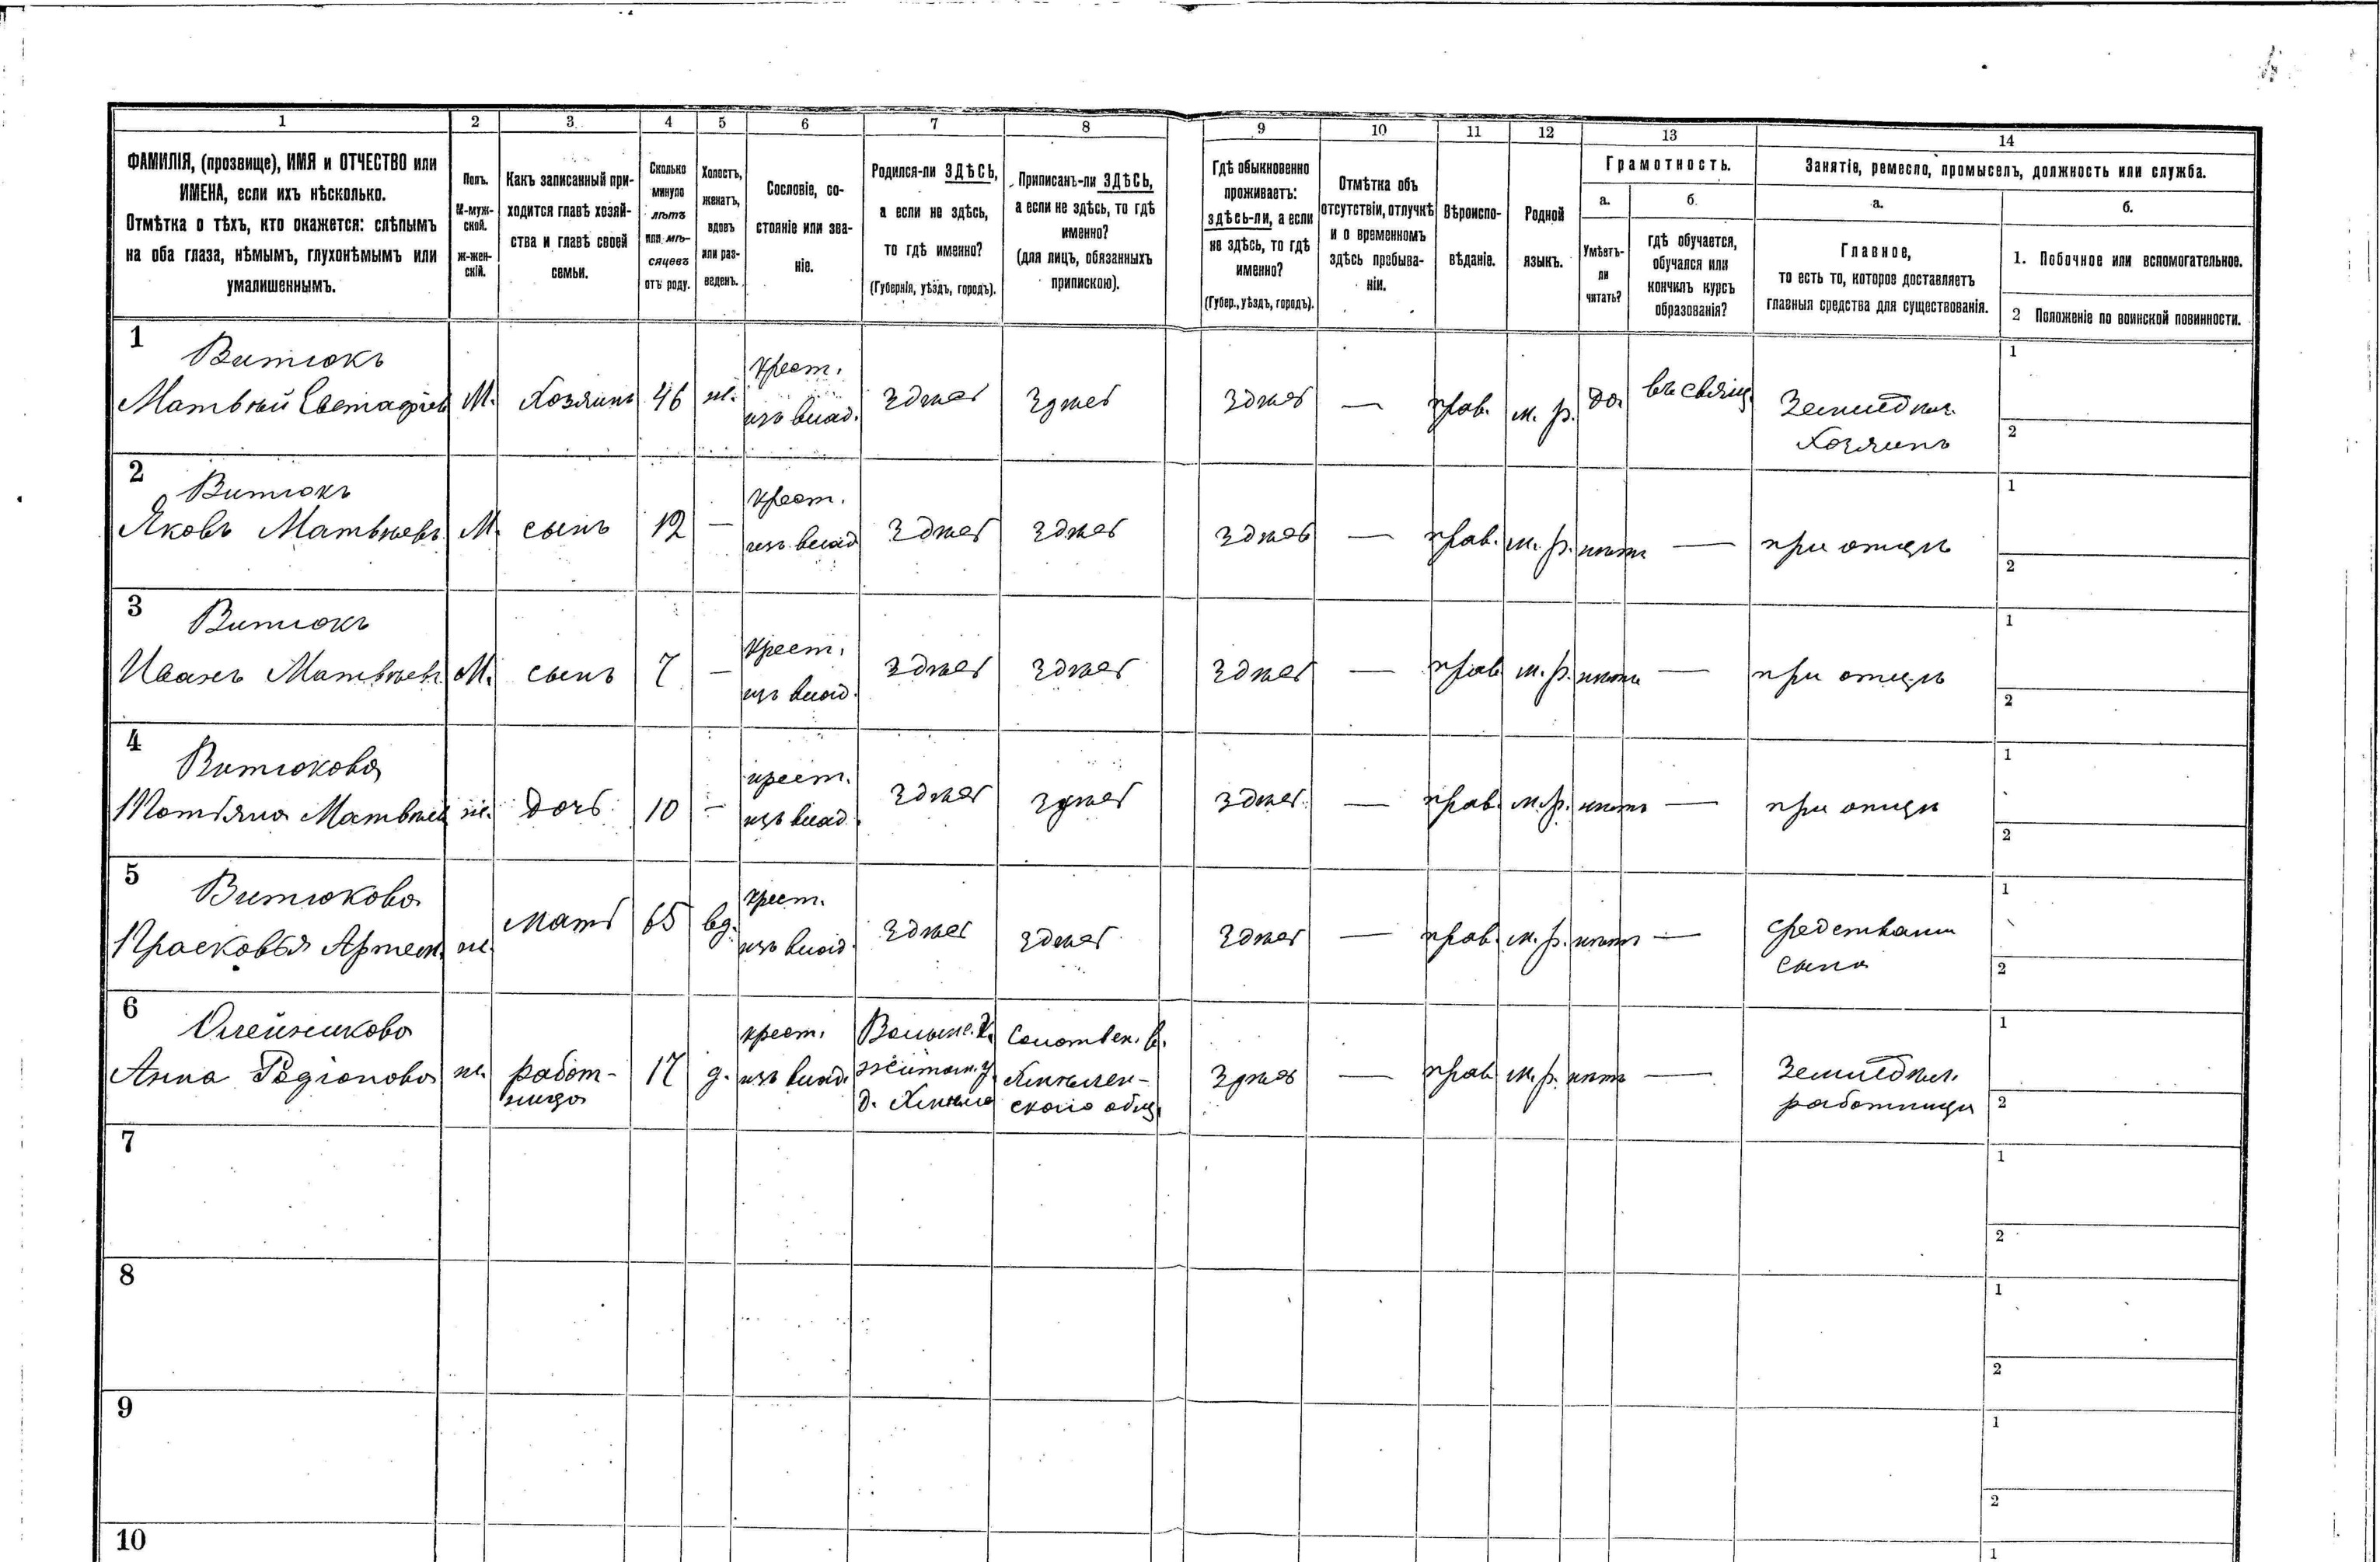 1 2 3 4 5 6 7 8 9 10 11 12 13 14
ФАМИЛІЯ, (прозвище), ИМЯ и ОТЧЕСТВО или
ИМЕНА, если ихъ нѣсколько.
Отмѣтка о тѣхъ, кто окажется: слѣпымъ
на оба глаза, нѣмымъ, глухонѣмымъ или
умалишеннымъ.
Полъ.
М-муж-
ской.
ж-жен-
скій.
Какъ записанный при-
ходится главѣ хозяй-
ства и главѣ своей
семьи.
Сколько
минуло
лѣтъ
или мѣ-
сяцевъ
отъ роду.
Холостъ,
женатъ,
вдовъ
или раз-
веденъ.
Сословіе, со-
стояніе или зва-
ніе.
Родился-ли ЗДѢСЬ,
а если не здѣсь,
то гдѣ именно?
(Губернія, уѣздъ, городъ).
Приписанъ-ли ЗДѢСЬ,
а если не здѣсь, то гдѣ
именно?
(для лицъ, обязанныхъ
припискою).
Гдѣ обыкновенно
проживаетъ:
здѣсь-ли, а если
не здѣсь, то гдѣ
именно?
(Губер., уѣздъ, городъ).
Отмѣтка объ
отсутствіи, отлучкѣ
и о временномъ
здѣсь пребыва-
ніи.
Вѣроиспо-
вѣданіе.
Родной
языкъ.
Грамотность.
а.
Умѣетъ-
ли
читать?
б.
гдѣ обучается,
обучался или
кончилъ курсъ
образованія?
Занятіе, ремесло, промыселъ, должность или служба.
а.
Главное,
то есть то, которое доставляетъ
главныя средства для существованія.
б.
1. Побочное или вспомогательное.
2 Положеніе по воинской повинности.
1
Витюкъ
Матвѣй М. Хозяинъ 46 ж. крест. изъ влад. здѣсь здѣсь здѣсь — прав. м. р. да въ свящ.
Земледѣл.
Хозяинъ
1
2
2
Витюкъ
Яковъ Матвѣевъ М. сынъ 12 — крест. изъ влад здѣсь здѣсь здѣсь — прав. м. р. нѣтъ — при отцѣ
1
2
3
Витюкъ
Иванъ Матвѣевъ М. сынъ 7 — крест. изъ влад. здѣсь здѣсь здѣсь — прав м. р. нѣтъ — при отцѣ
1
2
4
Витюкова
Татьяна Матвѣев ж. дочь 10 — крест. изъ влад здѣсь здѣсь здѣсь — прав. м. р. нѣтъ — при отцѣ
1
2
5
Витюкова
Прасковья Артем. ж. мать 65 вд. крест. изъ влад. здѣсь здѣсь здѣсь — прав. м. р. нѣтъ —
средствами
сына
1
2
6
Олейникова
Анна Родіонова ж. работ-
ница
17 д. крест. изъ влад.
Волынс. г.
житом. у.
д.
в.
ского общ.
здѣсь — прав м. р. нѣтъ —
Земледѣл.
работница
1
2
7
1
2
8
1
2
9
1
2
10
1